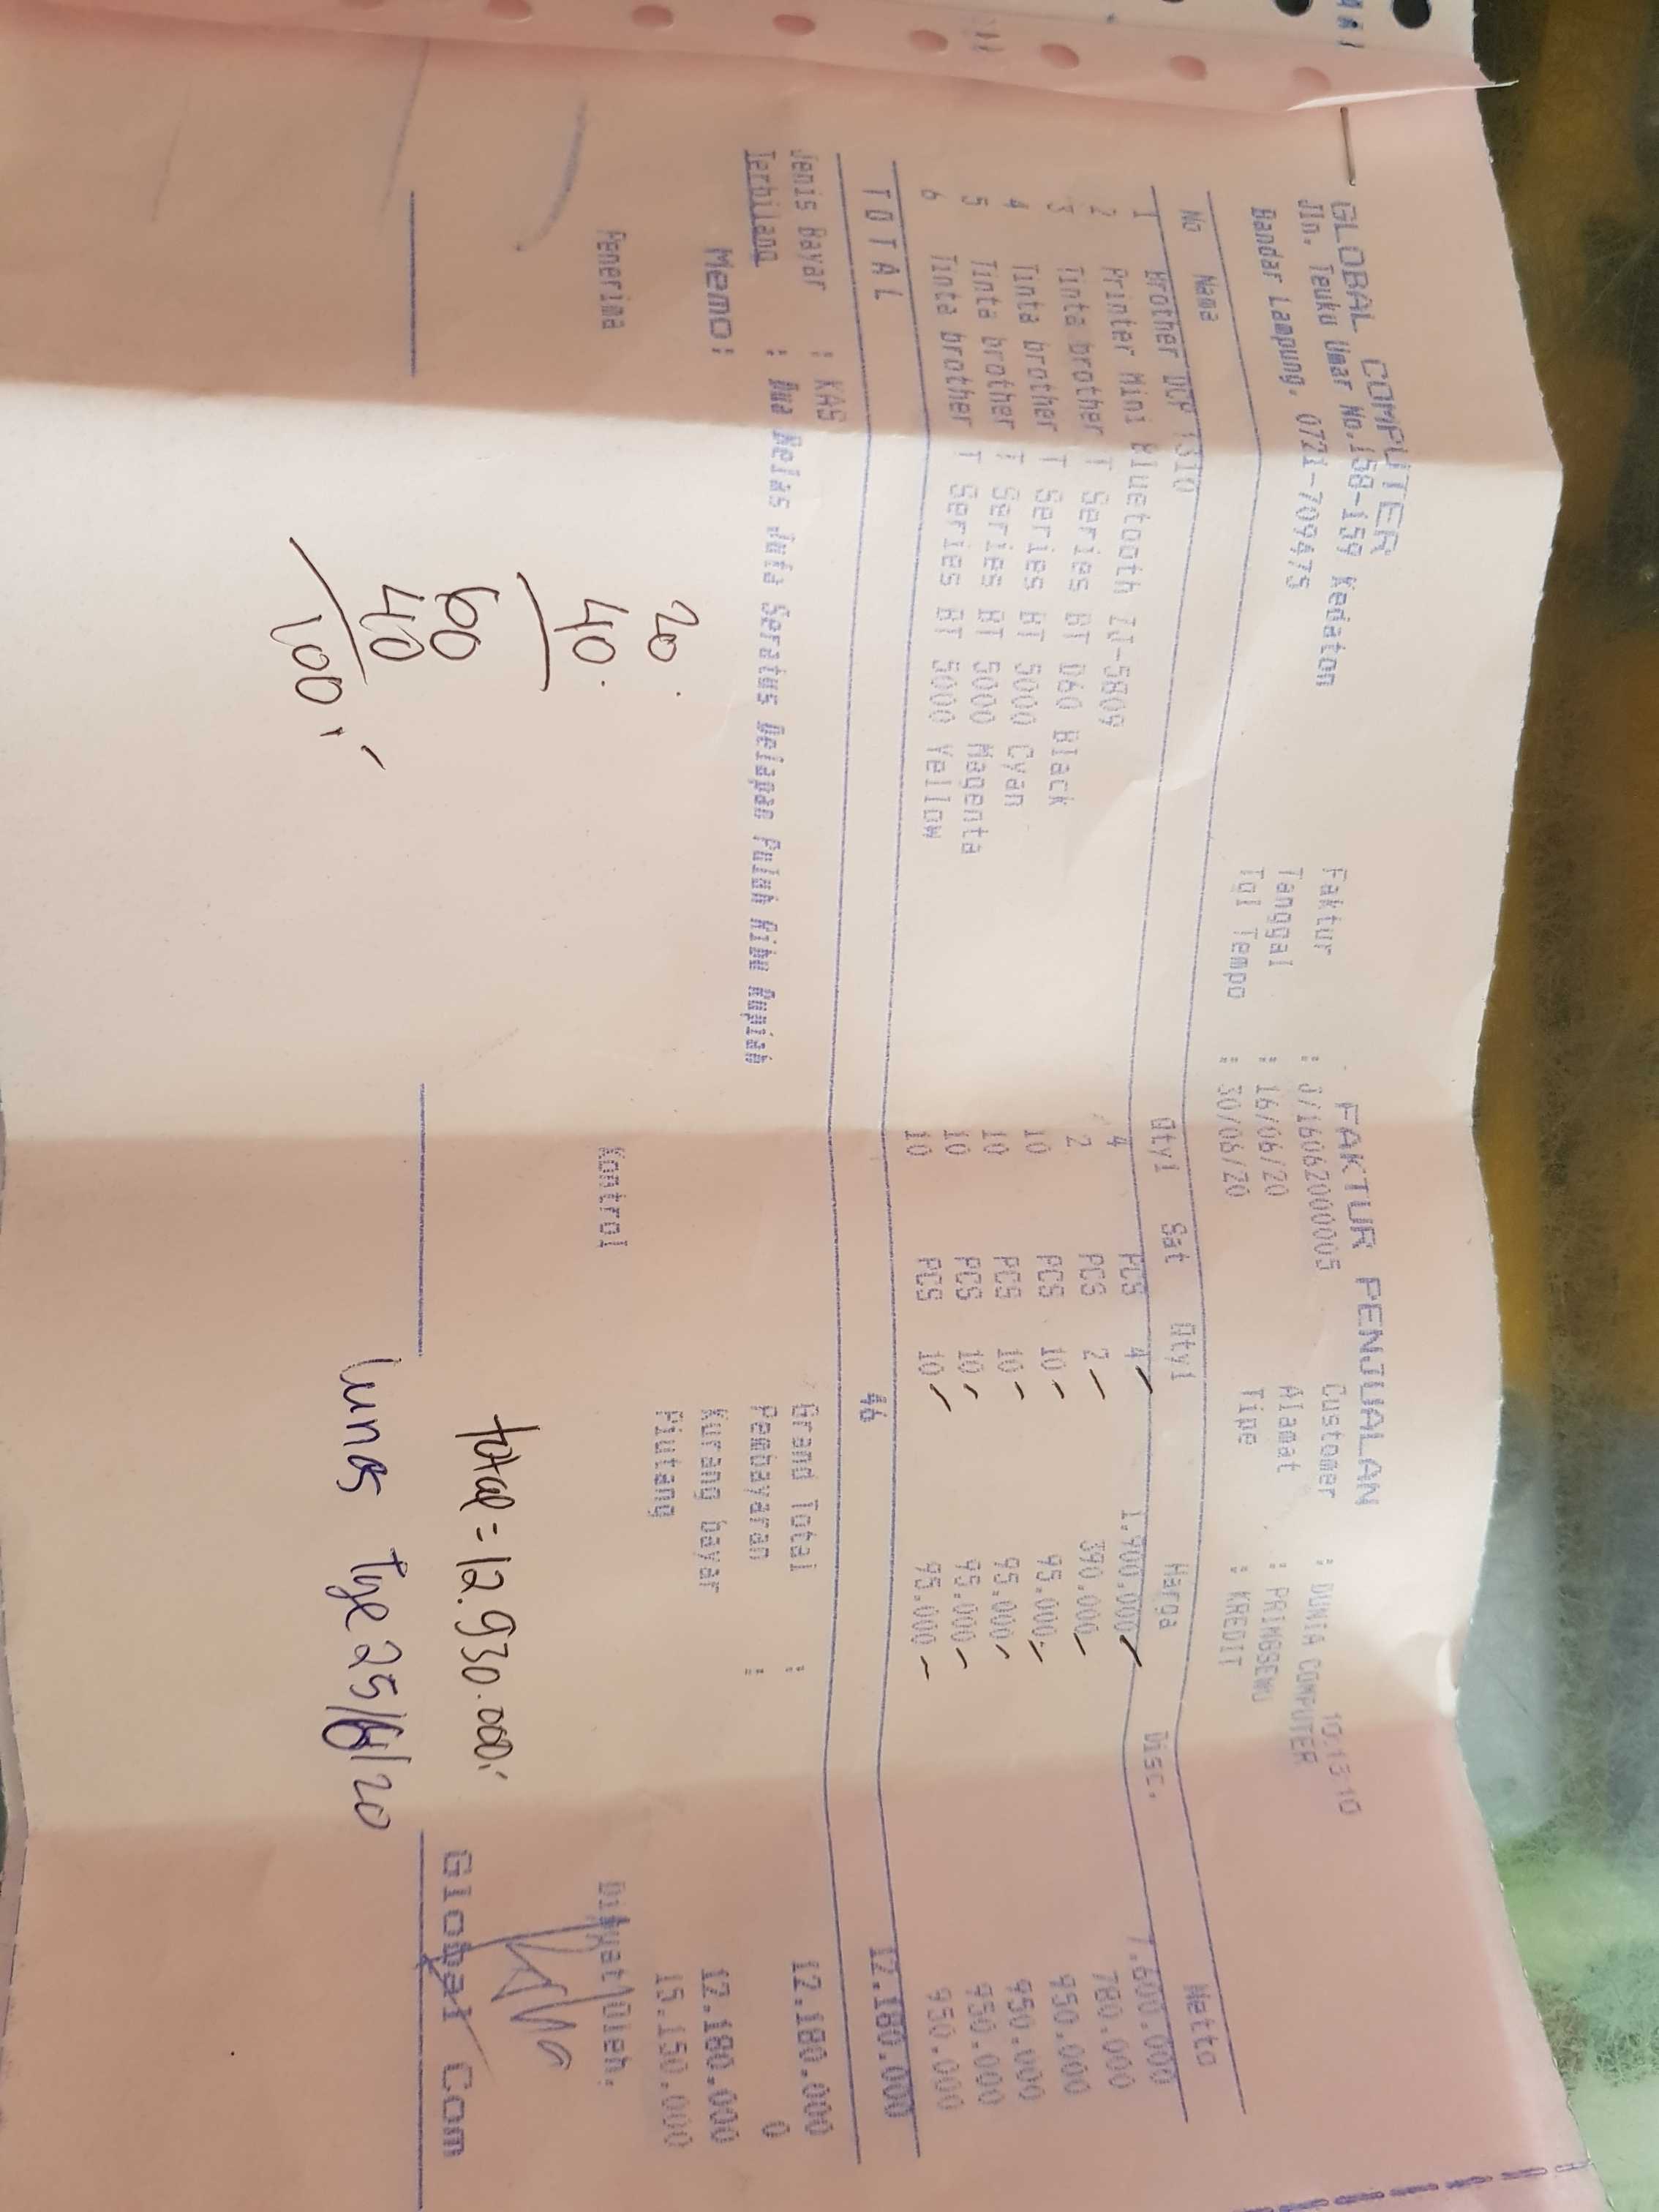 GLOBAL COMPUTER
Jln. Teuku Umar No.158-159 Kedaton
Bandar Lampung, 0721-709475
FAKTUR PENJUALAN
10:13:10
Faktur : J/1606200005
Tanggal : 16/06/20
Tgl Tempo : 30/06/20
Customer : DUNIA COMPUTER
Alamat : PRINGSEWU
Tipe : KREDIT
No Nama Qty1 Sat Qty1 Harga Disc. Netto
1 Brother DCP T310 4 PCS 4 1.900.000 7.600.000
2 Printer Mini Bluetooth ZJ-5809 2 PCS 2 390.000 780.000
3 Tinta brother T Series BT D60 Black 10 PCS 10 95.000 950.000
4 Tinta brother T Series BT 5000 Cyan 10 PCS 10 95.000 950.000
5 Tinta brother T Series BT 5000 Magenta 10 PCS 10 95.000 950.000
6 Tinta brother T Series BT 5000 Yellow 10 PCS 10 95.000 950.000
T O T A L 46 12.180.000
Jenis Bayar : KAS
Terbilang : Dua Belas Juta Seratus Delapan Puluh Ribu Rupiah
Memo:
Grand Total : 12.180.000
Pembayaran : 0
Kurang bayar 12.180.000
Piutang 15.150.000
Penerima Kontrol Dibuat Oleh,
20
40
60
40
100
total = 12.930.000
Lunas Tgl 25/6/20
Global Com